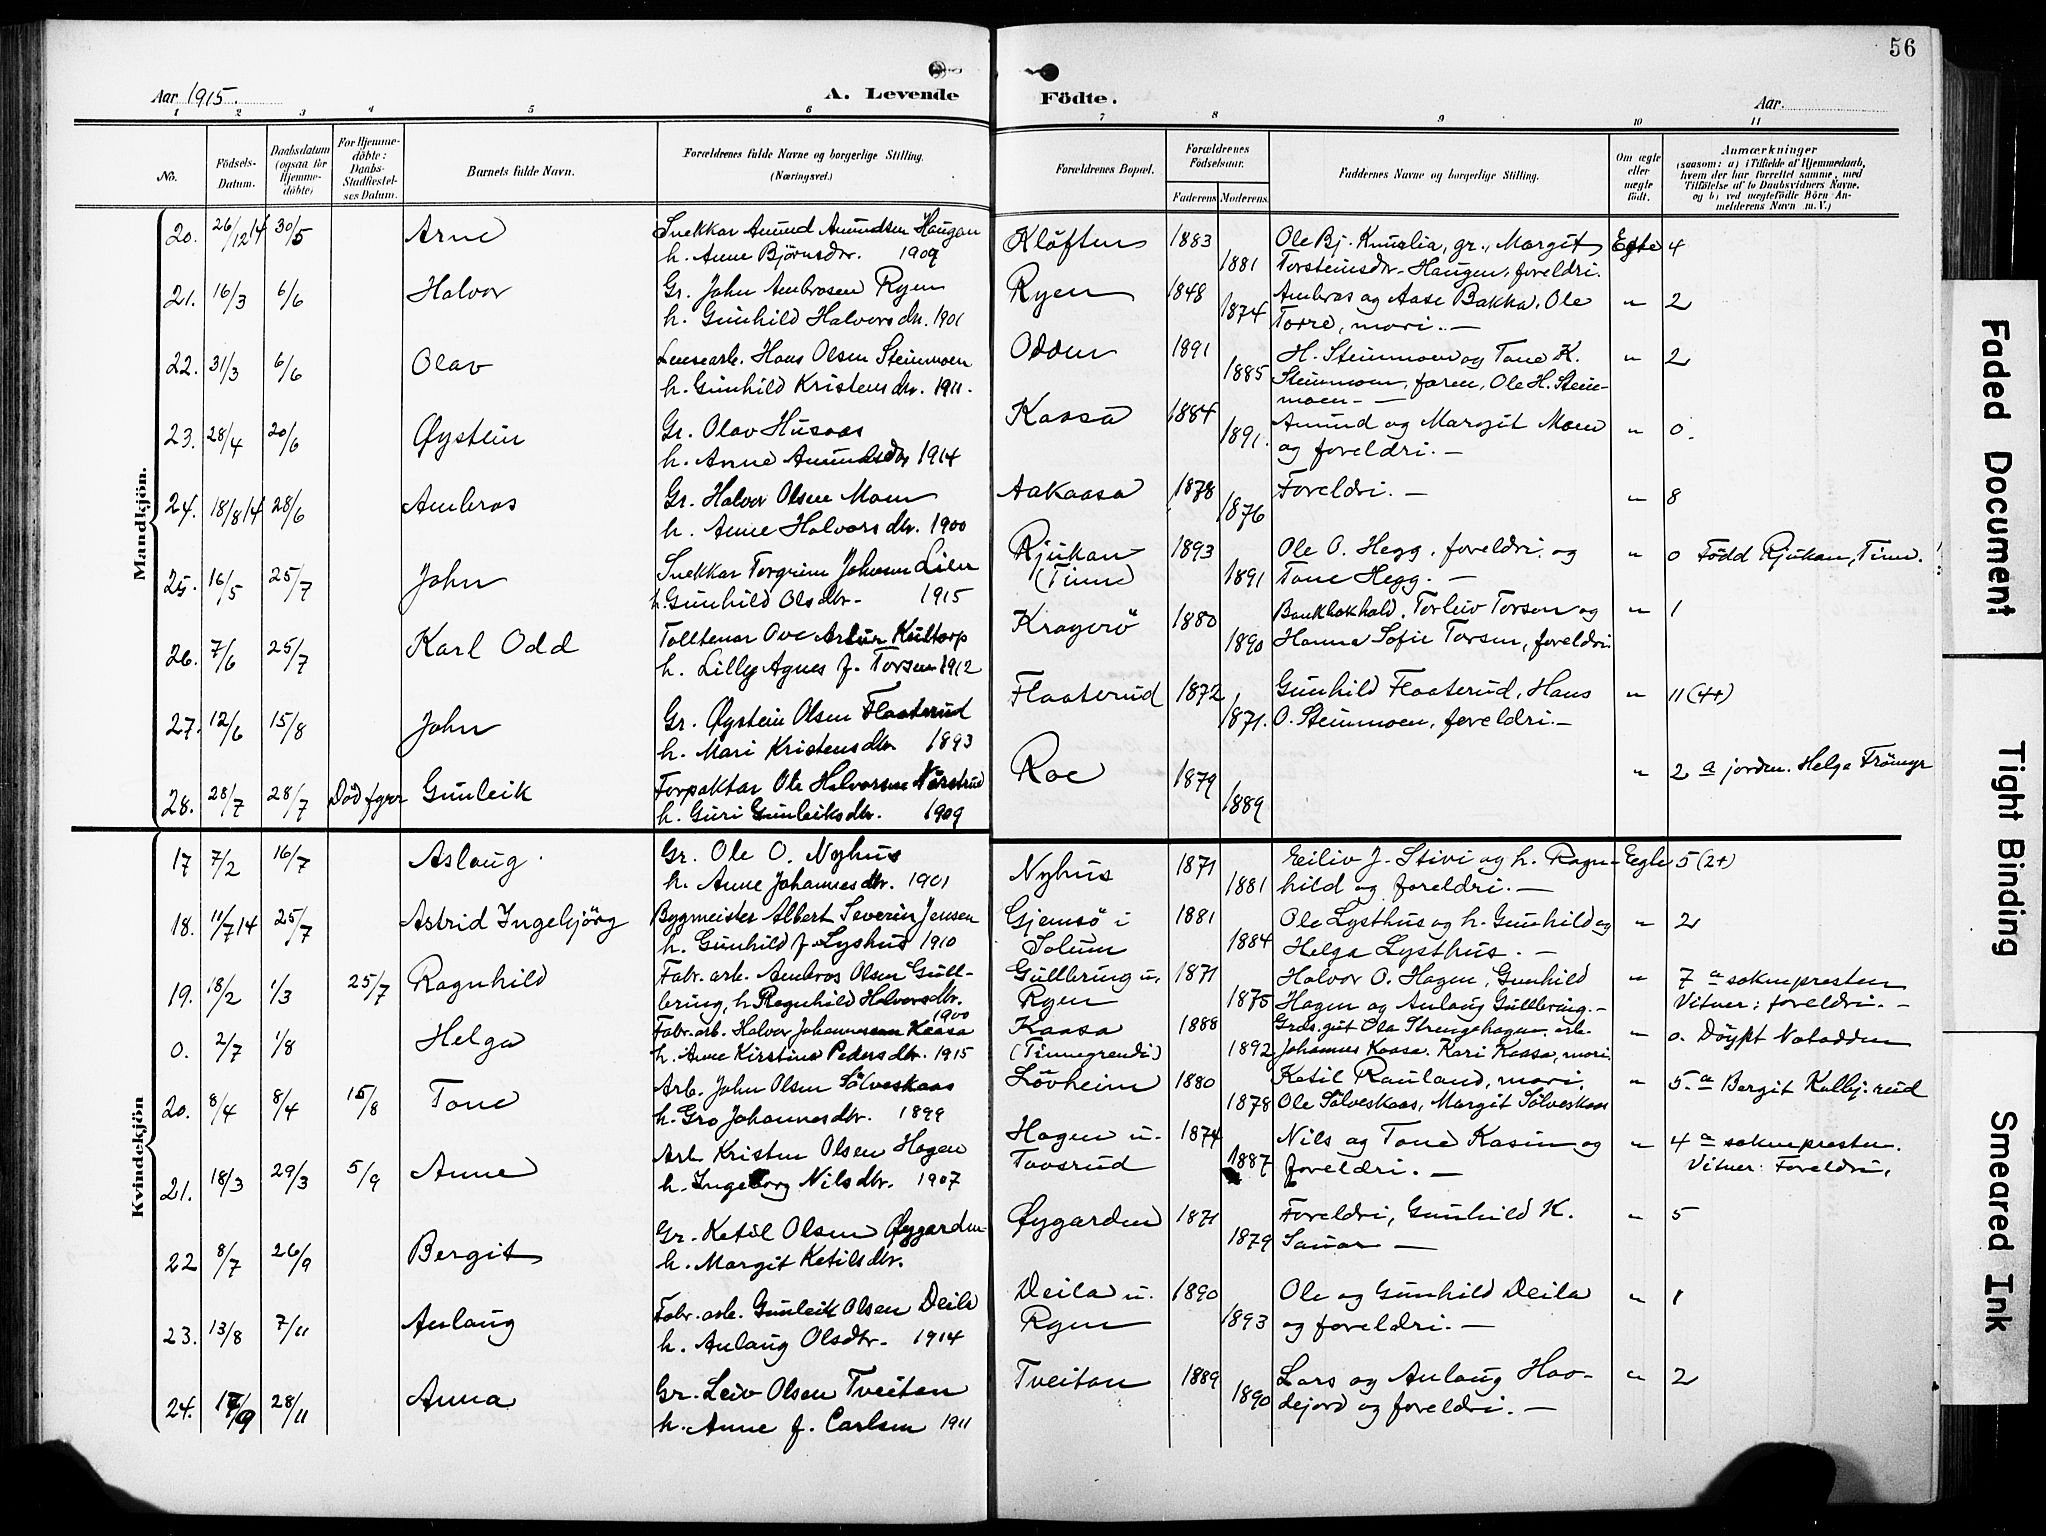 56
Aar 1915. A. Levende Födte. Aar.
1 2 3 4 5 6 7 8 9 10 11
No. Födsels-Datum. Daabsdatum (ogsaa for Hjemme-döbte) For Hjemme-döbte: Daabs-Stadfæstel-ses Datum. Barnets fulde Navn. Forældrenes fulde Navne og borgerlige Stilling. (Næringsvei.) Forældrenes Bopæl. Forældrenes Födselsaar. Faderens Moderens. Faddernes Navne og borgerlige Stilling. Om ægte eller uægte födt. Anmærkninger (saasom: a) i Tilfælde af Hjemmedaab, hvem der har forrettet samme, med Tilföielse af to Daabsvidners Navne. og b) ved uægtefödte Börn An-melderens Navn m. V.)
Mandkjön.
20. 26/12 14 30/5 Arne Snekkar Amund Amundsen Haugan Kløften 1883 Ole Bj. Knuslia, gr., Margit Egte 4
h. Anne Björnsdtr. 1909 1881 Torsteinsdtr. Haugen, foreldri.
21. 16/3 6/6 Halvor Gr. John Ambrosen Ryen Ryen 1848 Ambros og Aase Bakka, Ole " 2
h. Gunhild Halvorsdtr. 1901 1874 Torre, mori. —
22. 31/3 6/6 Olav Lensearb. Hans Olsen Steinmoen Odden 1891 H. Steinmoen og Tone K. " 2
h. Gunhild Kristensdtr. 1911. 1885 Steinmoen, faren, Ole H. Stein-
moen. —
23. 28/4 20/6 Øystein Gr. Olav Husaas Kaasa 1884 Amund og Margit Moen " 0.
h. Anne Amundsdtr 1914 1891. og foreldri. —
24. 18/8 14 28/6 Ambros Gr. Halvor Olsen Moen Aakaasa 1878 Foreldri. — " 8
h. Anne Halvorsdtr. 1900 1876
25. 16/5 25/7 John Snekkar Torgrim Johnsen Lien Rjukan 1893 Ole O. Hegg, foreldri og " 0 Född Rjukan, Tinn.
h. Gunhild Olsdtr. 1915 (Tinn) 1891 Tone Hegg. —
26. 7/6 25/7 Karl Odd Tolltenar Ove Artur Kultorp Kragerö 1880 Bankbokhald. Torleiv Torsen og " 1
h. Lilly Agnes f. Torsen 1912 1890 Hanna Sofie Torsen, foreldri
27. 12/6 15/8 John Gr. Øystein Olsen Flaaterud Flaaterud 1872 Gunhild Flaaterud, Hans " 11 (4+)
h. Mari Kristensdtr. 1893 1871. O. Steinmoen, foreldri. —
28. 28/7 28/7 Död fyrr Gunleik Forpaktar Ole Halvorsen Nørstrud Roe 1879 " 2 a jordm. Helga Frömyr
h. Guri Gunleiksdtr. 1909 1889
Kvindekjön
17 7/2 16/7 Aslaug Gr. Ole O. Nyhus Nyhus 1871 Eiliv J. Stivi og h. Ragn- Egte 5 (2+)
h. Anne Johannesdtr. 1901 1881 hild og foreldri. —
18. 11/7 14 25/7 Astrid Ingebjörg Bygmeister Albert Severin Jensen Gjemsö i 1881 Ole Lysthus og h. Gunhild og " 2
h. Gunhild f. Lysthus 1910 Solum 1884 Helga Lysthus. —
19. 18/2 1/3 25/7 Ragnhild Fabr. arb. Ambros Olsen Gull- Gullbring u. 1871 Halvor O. Hagen, Gunhild " 7 a soknepresten
bring, h. Ragnhild Halvorsdtr. 1900 Ryen 1875 Hagen og Anlaug Gullbring. — Vitner: foreldri. —
0. 2/7 1/8 Helga Fabr. arb. Halvor Johannessen Kaasa Kaasa 1888 Grds. gut Ola Strengehagen, arb. " 0. Döypt Notodden
h. Anne Kirstine Pedersdtr. 1915 (Tinnegrendi) 1892 Johannes Kaasa. Kari Kaasa, mori
20. 8/4 8/4 15/8 Tone Arb. John Olsen Sölveskaas Lövheim 1880 Ketil Rauland, mori, " 5. a Bergit Kolbj.rud
h. Gro Johannesdtr. 1899 1878 Ole Sölveskaas, Margit Sölveskaas
21. 18/3 29/3 5/9 Anne Arb. Kristen Olsen Hagen Hagen u. 1874 Nils og Tone Kasin og " 4 a soknepresten.
h. Ingeborg Nilsdtr. 1907 Tovsrud 1887 foreldri. — Vitner: Foreldri,
22 8/7 26/9 Bergit Gr. Ketil Olsen Øygarden Øygarden 1871 Foreldri, Gunhild K. " 5
h. Margit Ketilsdtr. 1879 Sauar —
23. 13/8 7/11 Anlaug Fabr. arb. Gunleik Olsen Deila Deila u. 1890 Ole og Gunhild Deila " 1
h. Anlaug Olsdtr. 1914 Ryen 1893 og foreldri. —
24. 17/9 28/11 Anna Gr. Leiv Olsen Tveitan Tveitan 1889 Lars og Anlaug Haa- " 2
h. Anne f. Carlsen 1911 1890 dejord og foreldri. —
Faded Document
Tight Binding
Smeared Ink